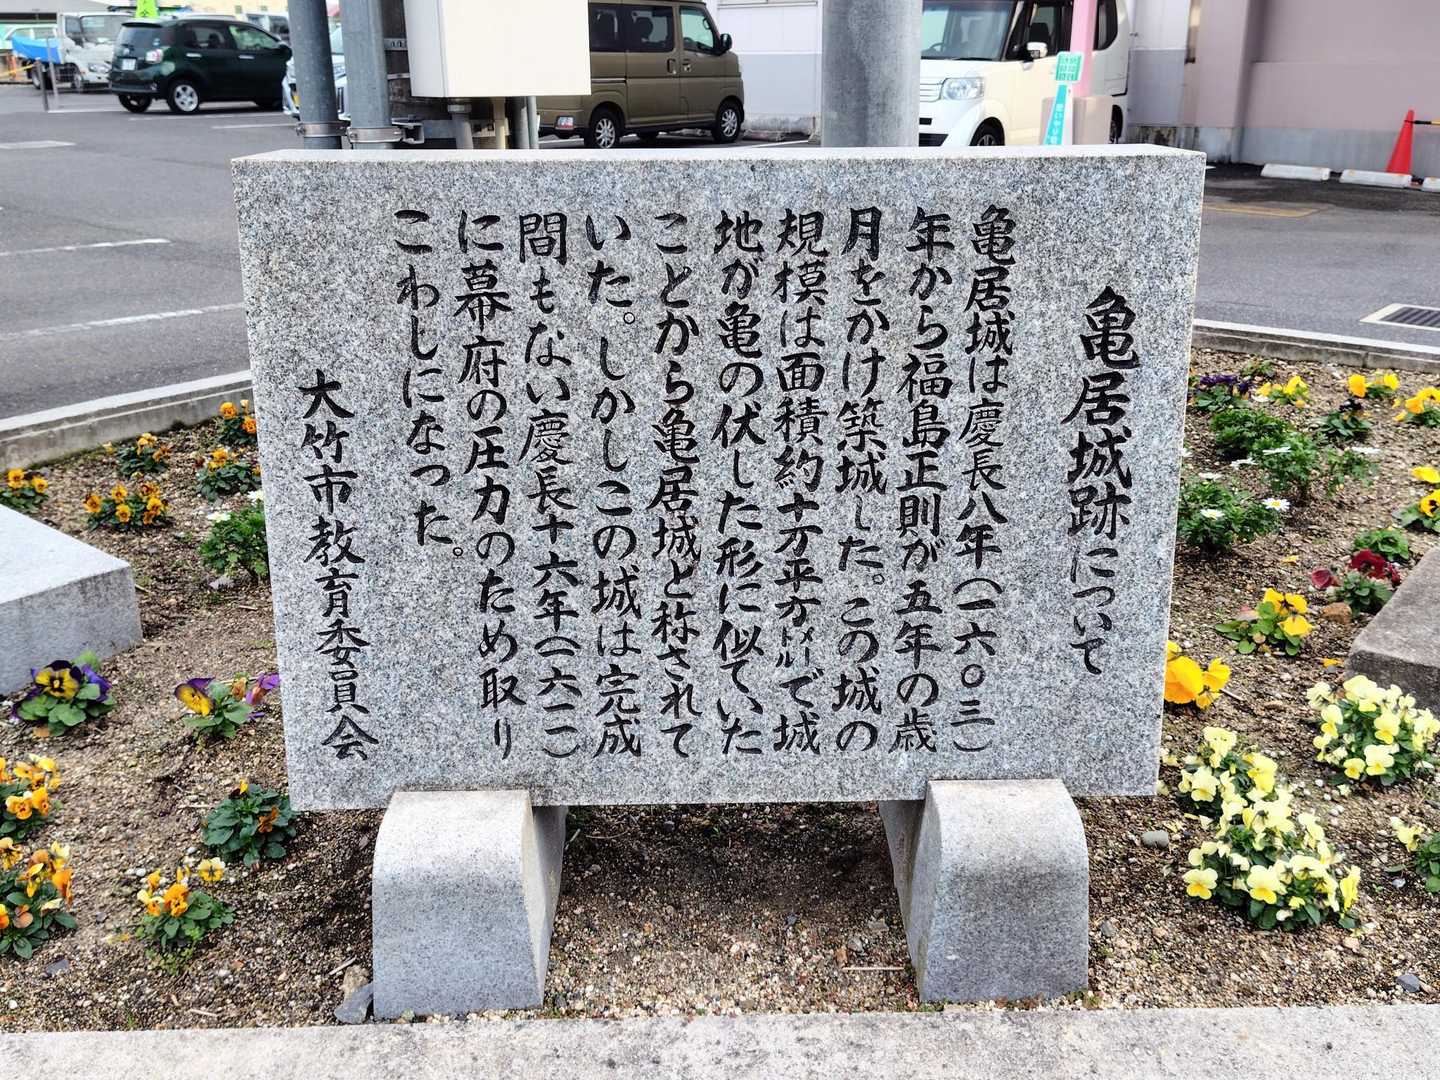 亀居城跡について
亀居城は慶長八年(一六〇三)
年から福島正則が五年の歳
月をかけ築城した。この城の
規模は面積約十万平方メートルで城
地が亀の伏した形に似ていた
ことから亀居城と称されて
いた。しかしこの城は完成
間もない慶長十六年(一六一一)
に幕府の圧力のため取り
こわしになった。
大竹市教育委員会